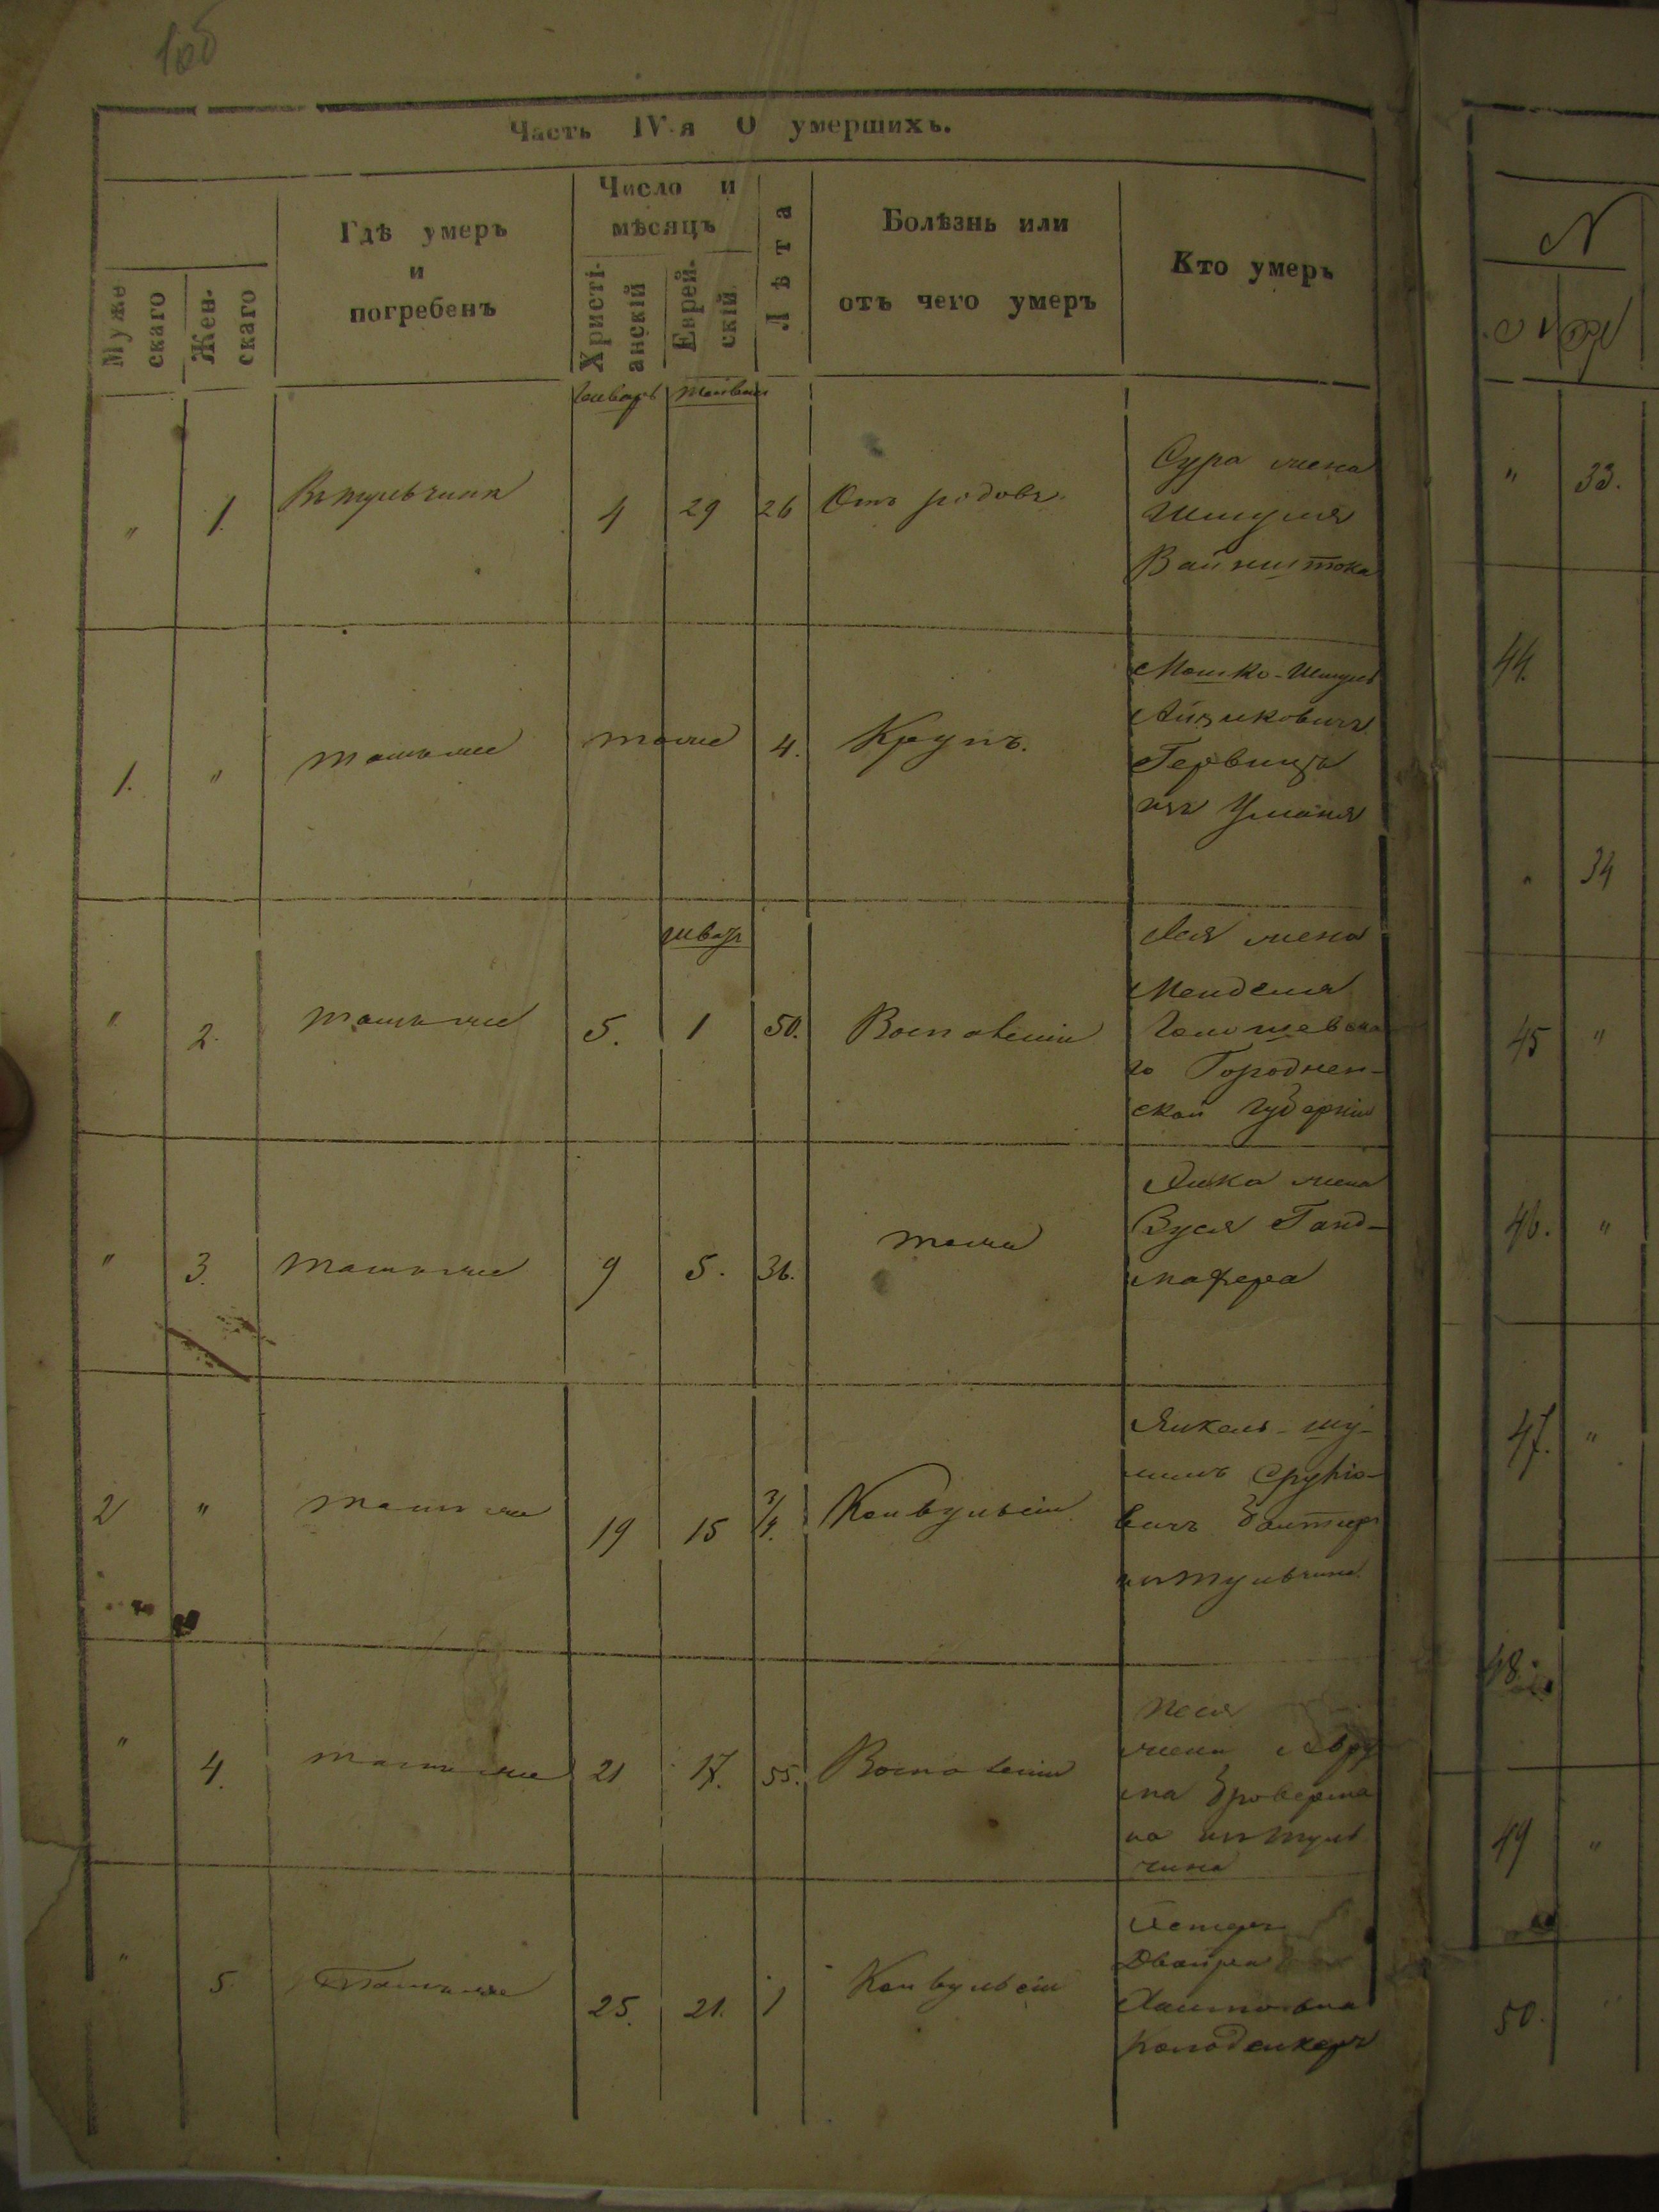 Часть IV-я О умершихъ.
Мужескаго
Женскаго
Гдѣ умеръ
и
погребенъ
Число и
мѣсяцъ
Христіанскій
Еврейскій
Лѣта
Болѣзнь или
отъ чего умеръ
Кто умеръ
Январь
" 1. Въ тульчинѣ 4 29 26 Отъ родовъ
Сура жена
Шмуля
Вайнштока
1. " тамъ же тоже 4. Крупъ.
Мошко-Шмуль
Айзиковичъ
Гервицъ
изъ Уманя
шват
" 2. тамъ же 5. 1 50. Воспаленіи
Лея жена
Менделя
го Городнен-
ской губерніи
" 3. тамъ же 9 5. 36. тоже
жена
Зуся Ганд-
2 " тамъ же 19 15 3/4. Конвульсіи
Янкель-
вичъ
изъ тульчина
" 4. тамъ же 21 17. 55. Воспаленіи
Песя
жена Авру
ма
на изъ туль
чина
" 5. Тамъ же 25. 21. 1 Конвульсіи
Двойра
Хаимовна
Колоденкеръ
N
" 33.
44.
" 34
45 "
46. "
47. "
48.
49 "
50. "